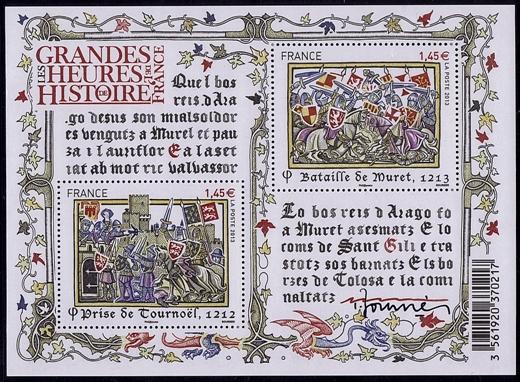 LES
GRANDES
HEURES
DE L'
HISTOIRE
DE
FRANCE
Quel bos
reis d Ara
go desus son mialsoldor
es vengutz a Murel et pau
za i l auriflor Ea laset
iat ab mot ric valvassor
FRANCE 1,45€
LA POSTE 2013
Bataille de Muret, 1213
FRANCE 1,45€
LA POSTE 2013
Prise de Tournoël, 1212
Lo bos reis d Arago fo
a Muret asesmatz E lo
coms de Sant Gili e tra
stotz sos barnatz Els bor
zes de Tolosa e la comi
naltatz
3 561920 370217